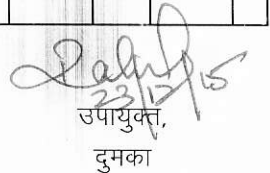 23/12/15
उपायुक्त,
दुमका